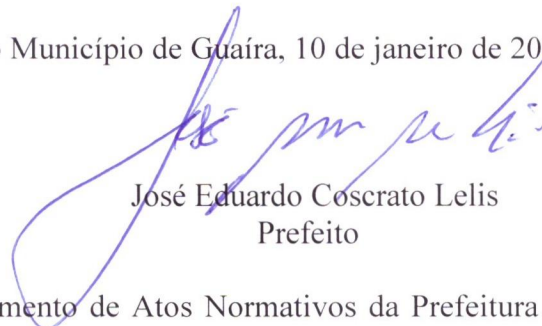 Município de Guaíra, 10 de janeiro de 20
José Eduardo Coscrato Lelis
Prefeito
mento de Atos Normativos da Prefeitura